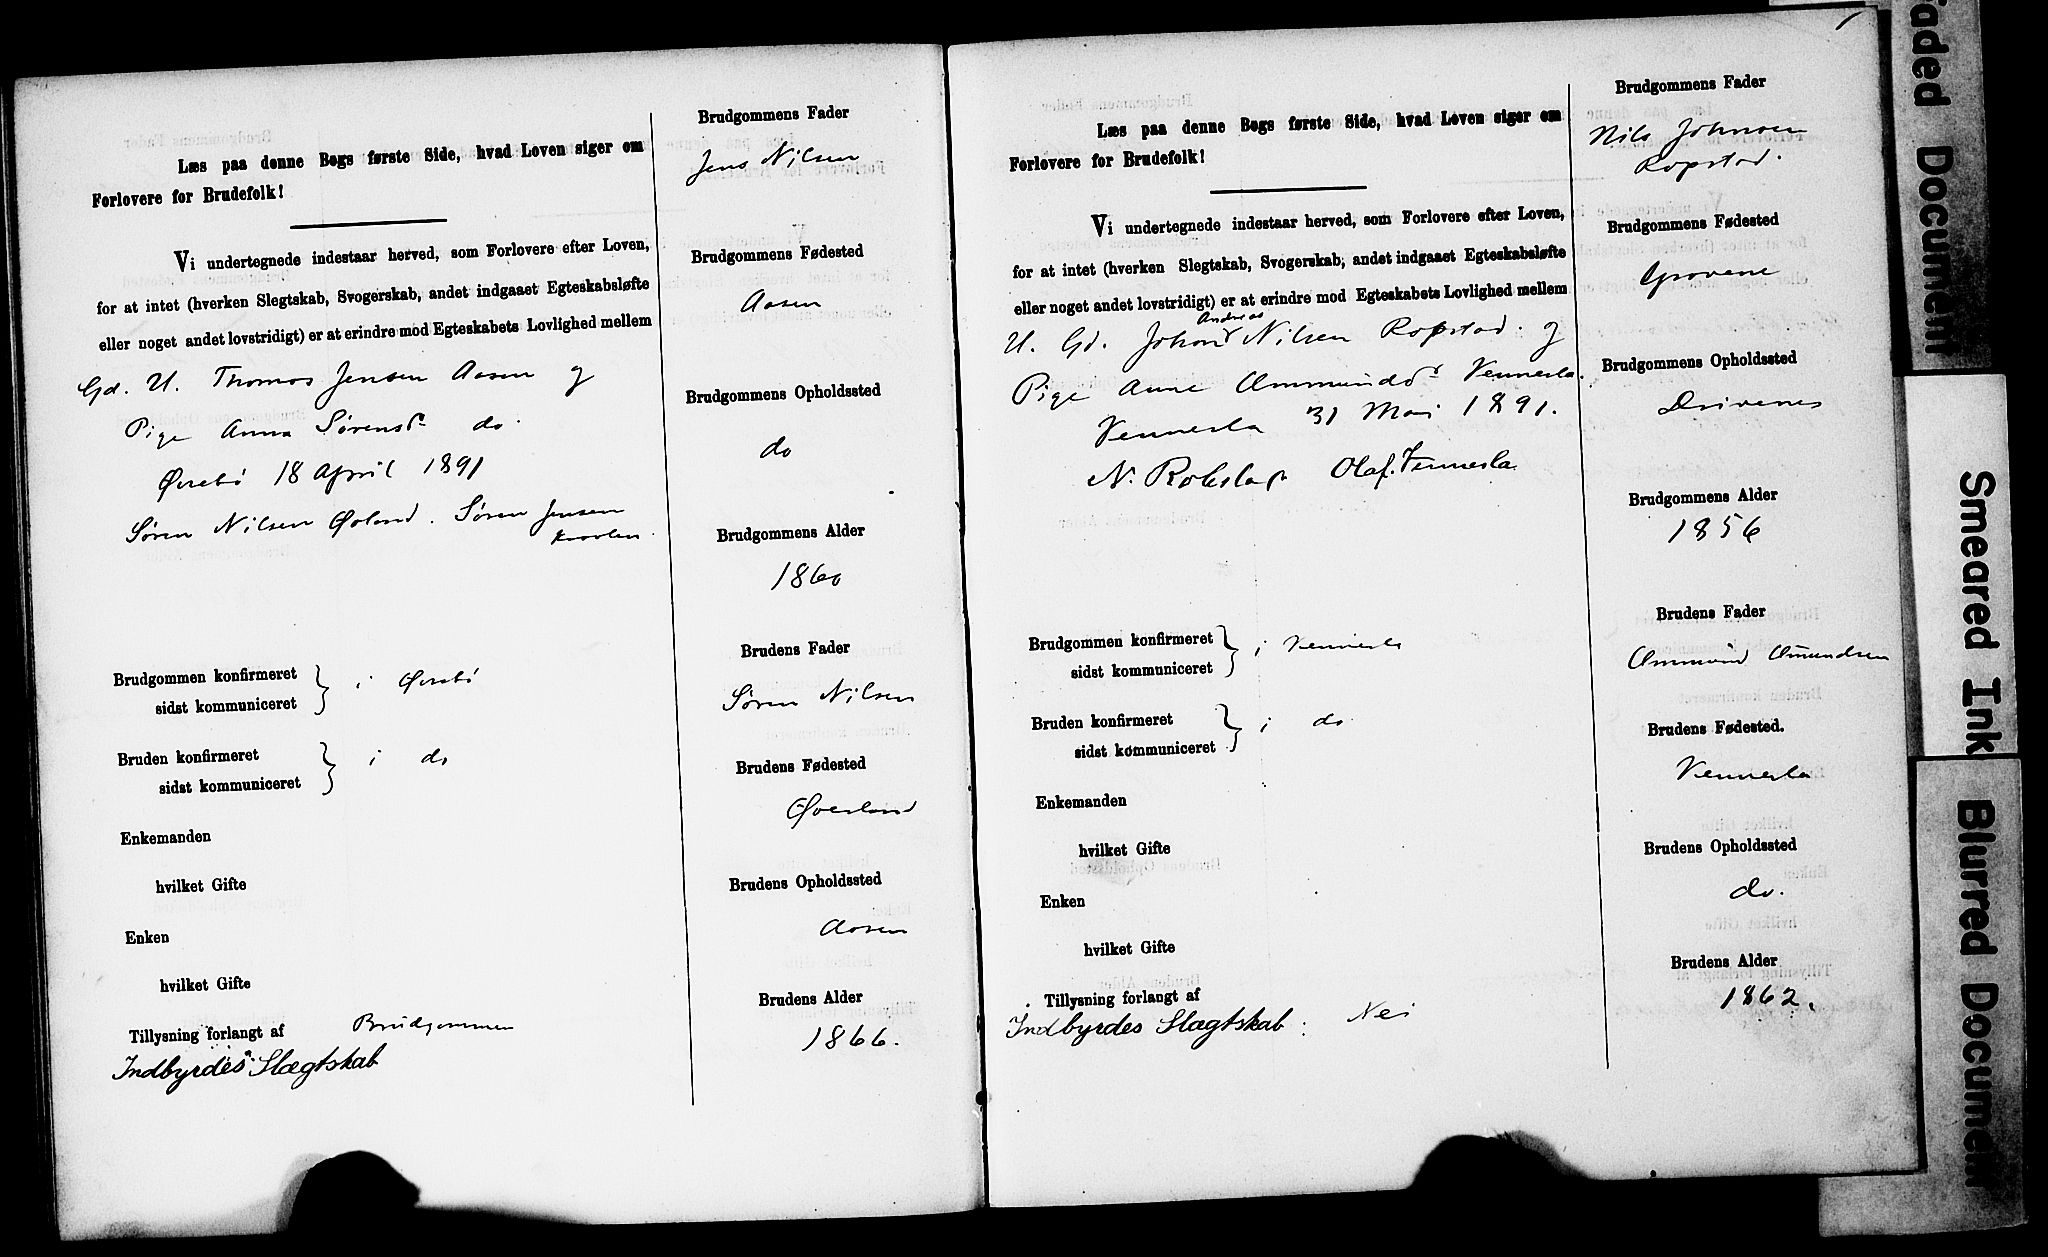 Læs paa denne Bogs første Side, hvad Loven siger om
Forlovere for Brudefolk!
Vi undertegnede indestaar herved, som Forlovere efter Loven,
for at intet (hverken Slegtskab, Svogerskab, andet indgaaet Egteskabsløfte
eller noget andet lovstridigt) er at erindre mod Egteskabets Lovlighed mellem
Gd. U. Thomas Jensen Aasen og
Pige Anna Sørensdr do.
Øvrebø 18 April 1891
Søren Nilsen Øvland. Søren Jensen
Brudgommen konfirmeret
sidst kommuniceret } i Øvrebø
Bruden konfirmeret
sidst kommuniceret } i do
Enkemanden
hvilket Gifte
Enken
hvilket Gifte
Tillysning forlangt af Brudgommen
Indbyrdes Slægtskab
Brudgommens Fader
Jens Nilsen
Brudgommens Fødested
Aasen
Brudgommens Opholdssted
do
Brudgommens Alder
1860
Brudens Fader
Søren Nilsen
Brudens Fødested
Øverland
Brudens Opholdssted
Aasen
Brudens Alder
1866.
Læs paa denne Bogs første Side, hvad Loven siger om
Forlovere for Brudefolk!
Vi undertegnede indestaar herved, som Forlovere efter Loven,
for at intet (hverken Slegtskab, Svogerskab, andet indgaaet Egteskabsløfte
eller noget andet lovstridigt) er at erindre mod Egteskabets Lovlighed mellem
Andreas
U. Gd. Johan Nilsen Ropstad. og
Pige Anne Ommundsdr Vennesla.
Vennesla 31 Mai 1891.
N. Olaf. Vennesla
Brudgommen konfirmeret
sidst kommuniceret } i Vennesla
Bruden konfirmeret
sidst kommuniceret } i do
Enkemanden
hvilket Gifte
Enken
hvilket Gifte
Tillysning forlangt af
Indbyrdes Slægtskab: Nei
Brudgommens Fader
Nils Johnsen
Ropstad.
Brudgommens Fødested
Grovene
Brudgommens Opholdssted
Drivenes
Brudgommens Alder
1856
Brudens Fader
Ommund Omundsen
Brudens Fødested.
Vennesla
Brudens Opholdssted
do.
Brudens Alder
1862.
Faded Document
Smeared Ink
Blurred Document